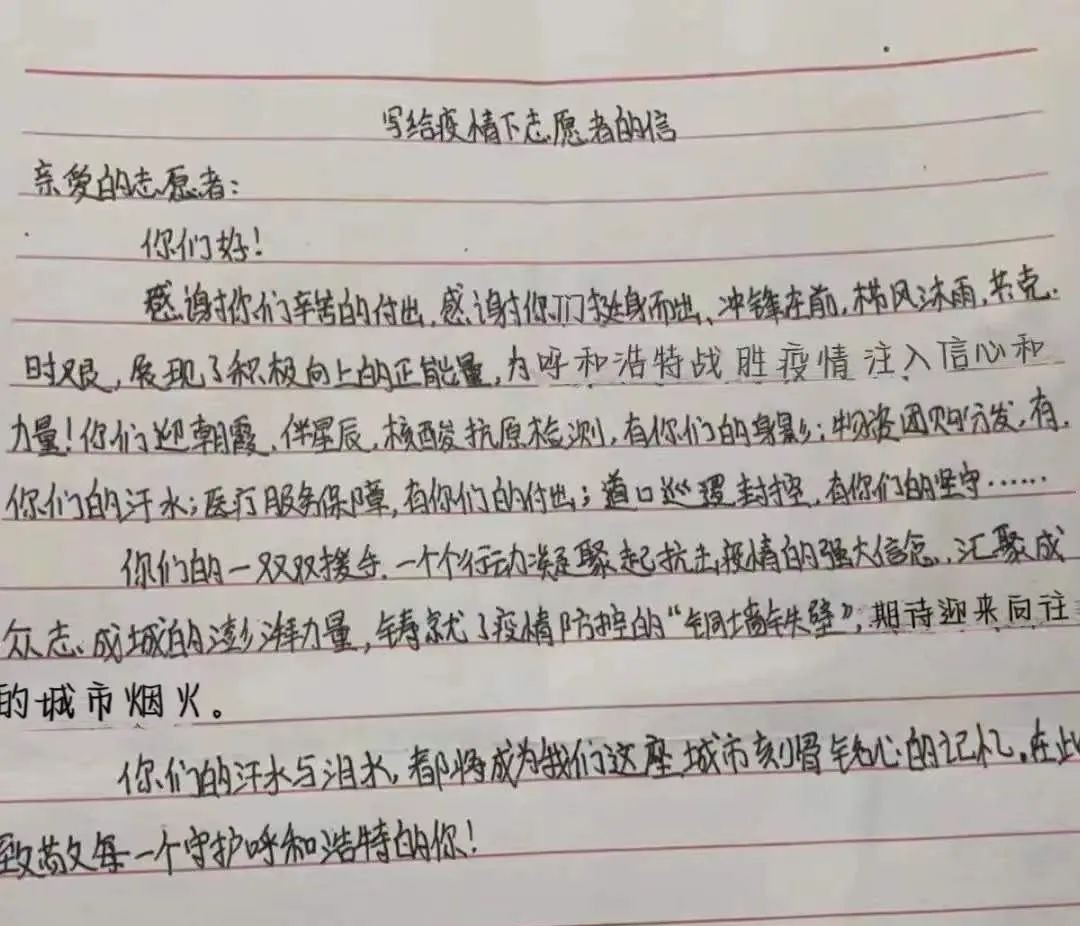 写给疫情下志愿者的信
亲爱的志愿者:
你们好!
感谢你们辛苦的付出,感谢你们挺身而出、冲锋在前,栉风沐雨,共克
时艰,展现了积极向上的正能量,为呼和浩特战胜疫情注入信心和
力量!你们迎朝霞、伴星辰,核酸抗原检测,有你们的身影;物资团购分发,有
你们的汗水;医疗服务保障,有你们的付出;道口巡逻封控,有你们的坚守……
你们的一双双援手、一个个行动凝聚起抗击疫情的强大信念,汇聚成
众志成城的澎湃力量,铸就了疫情防控的“铜墙铁壁”,期待迎来向往
的城市烟火。
你们的汗水与泪水,都将成为我们这座城市刻骨铭心的记忆。在此
致敬每一个守护呼和浩特的你!